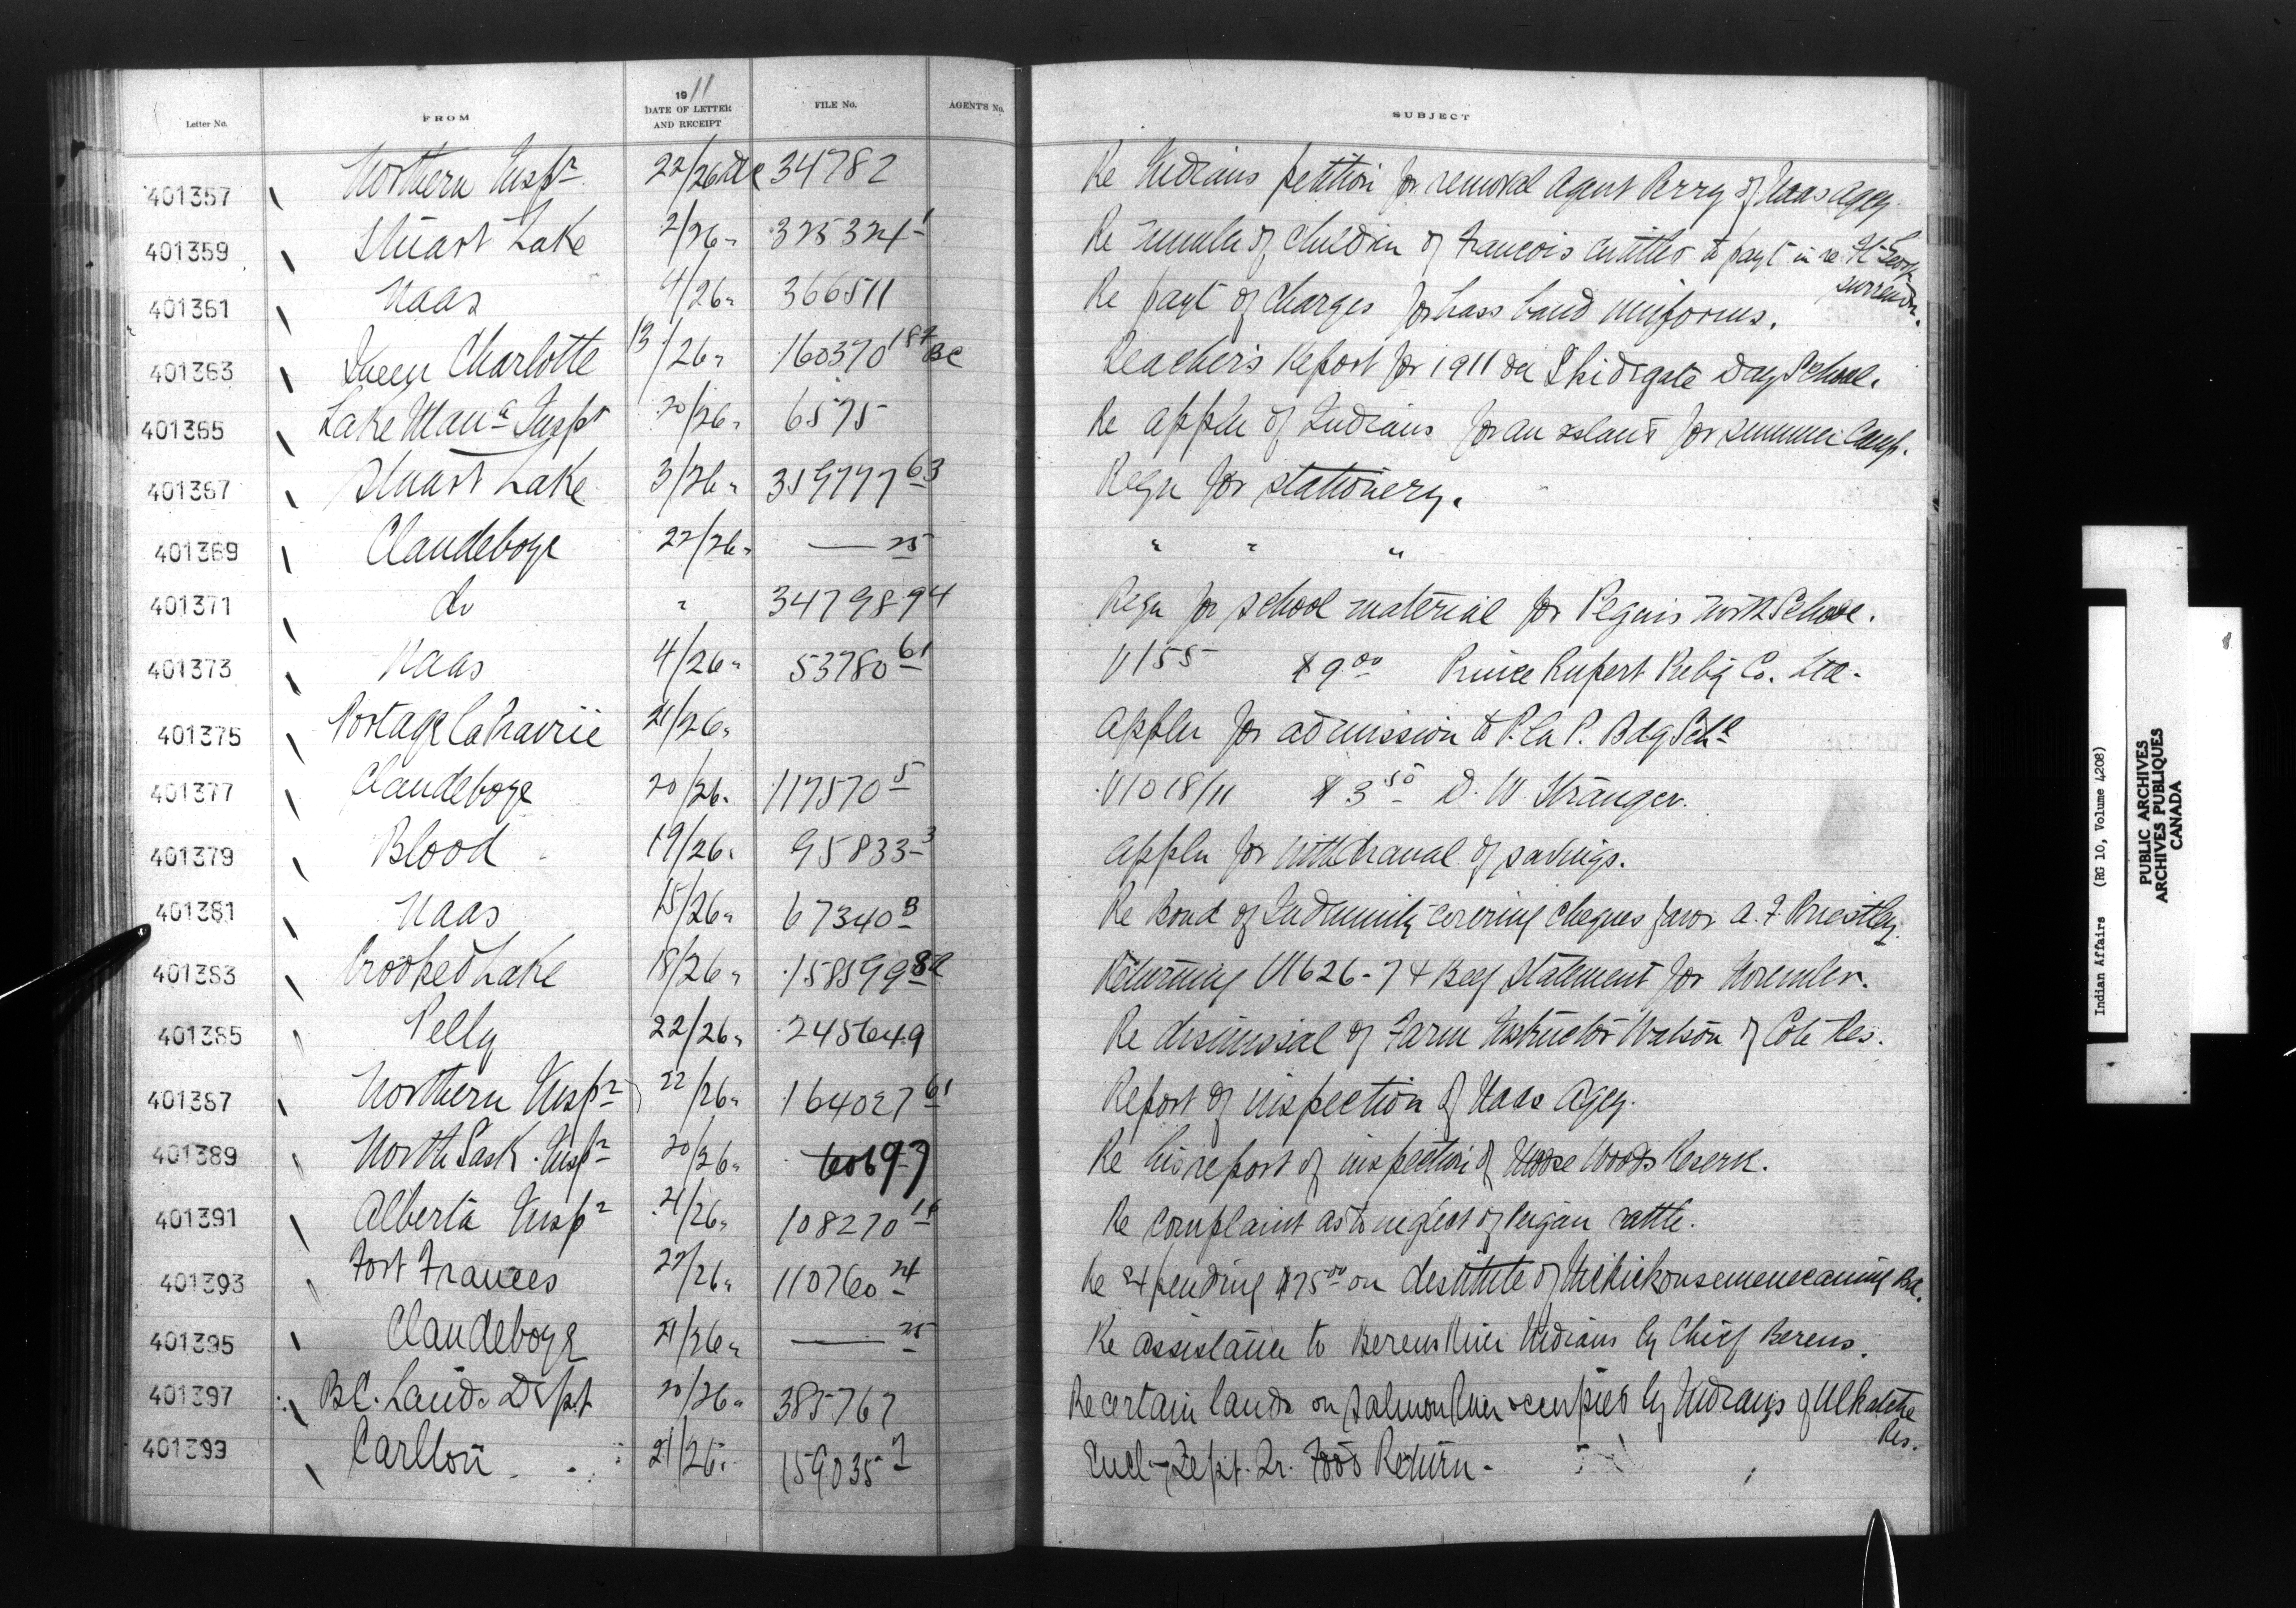 Letter No. FROM 1911 DATE OF LETTER AND RECEIPT FILE No. AGENT'S No. SUBJECT
401357 Northern Inspr 22/26 Dec 34782 Re Indians petition for removal Agent Perry of Naas Agcy.
401359 Stuart Lake 2/26 " 325324-1 Re number of children of Francois entitled to payt in re Ft. George surrender.
401361 Naas 4/26 " 366511 Re payt of charges for brass band uniforms.
401363 Queen Charlotte 13/26 " 160370 BC Teacher's Report for 1911 on Skidegate Day School.
401365 Lake Mana Inspr 20/26 " 6575 Re appln of Indians for an island for summer camp.
401367 Stuart Lake 3/26 " 359777 63 Reqn for stationery.
401369 Clandeboye 22/26 " — 25 " " "
401371 do " 347989 4 Reqn for school material for Peguis North School.
401373 Naas 4/26 " 53780 61 V155 $9.00 Prince Rupert Publg Co. Ltd.
401375 Portage la Prairie 21/26 " Appln for admission to P. la P. Bdg Schl
401377 Clandeboye 20/26 " 117570 5 V1018/11 $3.50 D. W. Stranger.
401379 Blood 19/26 " 95833-3 Appln for withdrawal of savings.
401381 Naas 15/26 " 67340 B Re Bond of Indemnity covering cheques favor A. F. Priestley.
401383 Crooked Lake 18/26 " 158599 Returning V1626-7 & Beef Statement for November.
401385 Pelly 22/26 " 245649 Re dismissal of Farm Instructor Watson of Cote Res.
401387 Northern Inspr 22/26 " 164027 61 Report of inspection of Naas Agcy.
401389 North Sask. Inspr 20/26 " 60697 Re his report of inspection of Moose Woods Reserve.
401391 Alberta Inspr 21/26 " 108270 Re complaint as to neglect of Peigan cattle.
401393 Fort Frances 22/26 " 110760 24 Re expending $75.00 on destitute of Nickickonsemenecaning Bd.
401395 Clandeboye 21/26 " — 25 Re assistance to Berens River Indians by Chief Berens.
401397 B.C. Lands Dept 20/26 " 385767 Re certain lands on Salmon River occupied by Indians of Ulkatcho Res.
401399 Carlton 21/26 " 159035-7 Encl- Sept. Qr. Food Return.
Indian Affairs (RG 10, Volume 4208)
PUBLIC ARCHIVES
ARCHIVES PUBLIQUES
CANADA